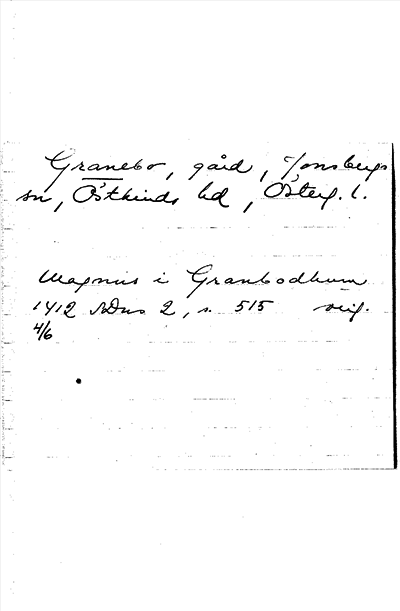 Granebo, gård, Jonsbergs
sn, Östkinds hd, Österg. l.
Magnus i Granbodhum
1412 SDns 2, s. 515 orig.
4/6